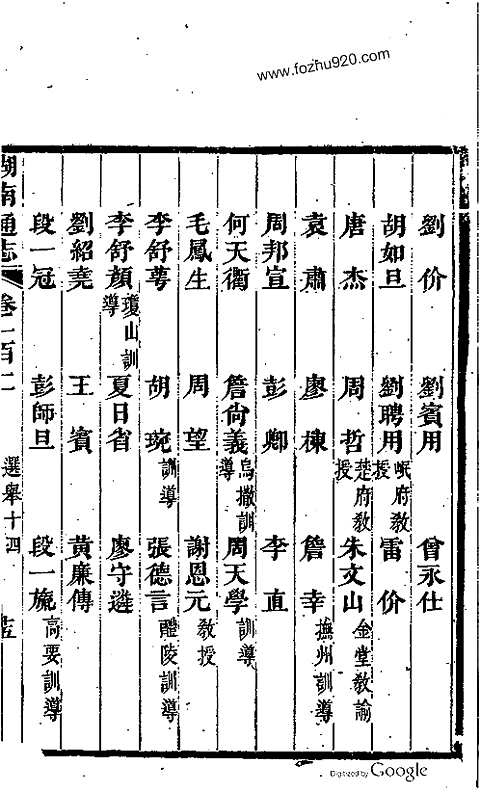 www.fozhu920.com
劉价 劉賓用 曾永仕
胡如旦 劉聘用岷府教授 雷价
唐杰 周哲楚府教授 朱文山金堂教諭
袁肅 廖棟 詹幸撫州訓導
周邦宣 彭卿 李直
何天衢 詹尙義烏撒訓導 周天學訓導
毛鳳生 周望 謝恩元教授
李舒萼 胡琬訓導 張德言醴陵訓導
李舒顏瓊山訓導 夏日省 廖守遴
劉紹堯 王賓 黃廉傳
段一冠 彭師旦 段一旎高要訓導
湖南通志 卷一百二 選舉十四
Digitized by Google